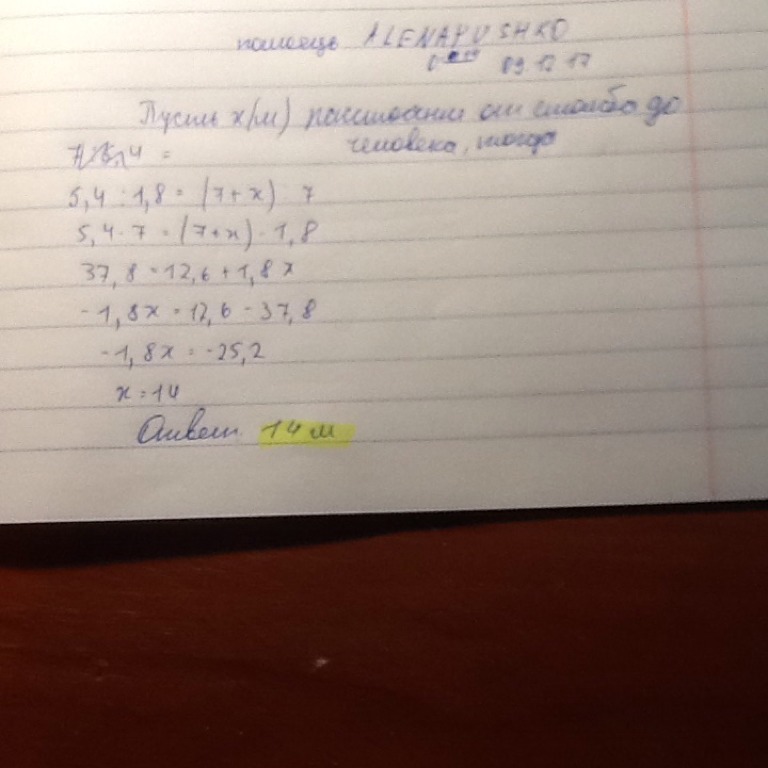 помощь ALENAPUSHKO
09 12 17
Пусть x(м) расстояние от столба до
человека, тогда
5,4 : 1,8 = (7+x) : 7
5,4 · 7 = (7+x) · 1,8
37,8 = 12,6 + 1,8x
-1,8x = 12,6 - 37,8
-1,8x = -25,2
x = 14
Ответ 14 м